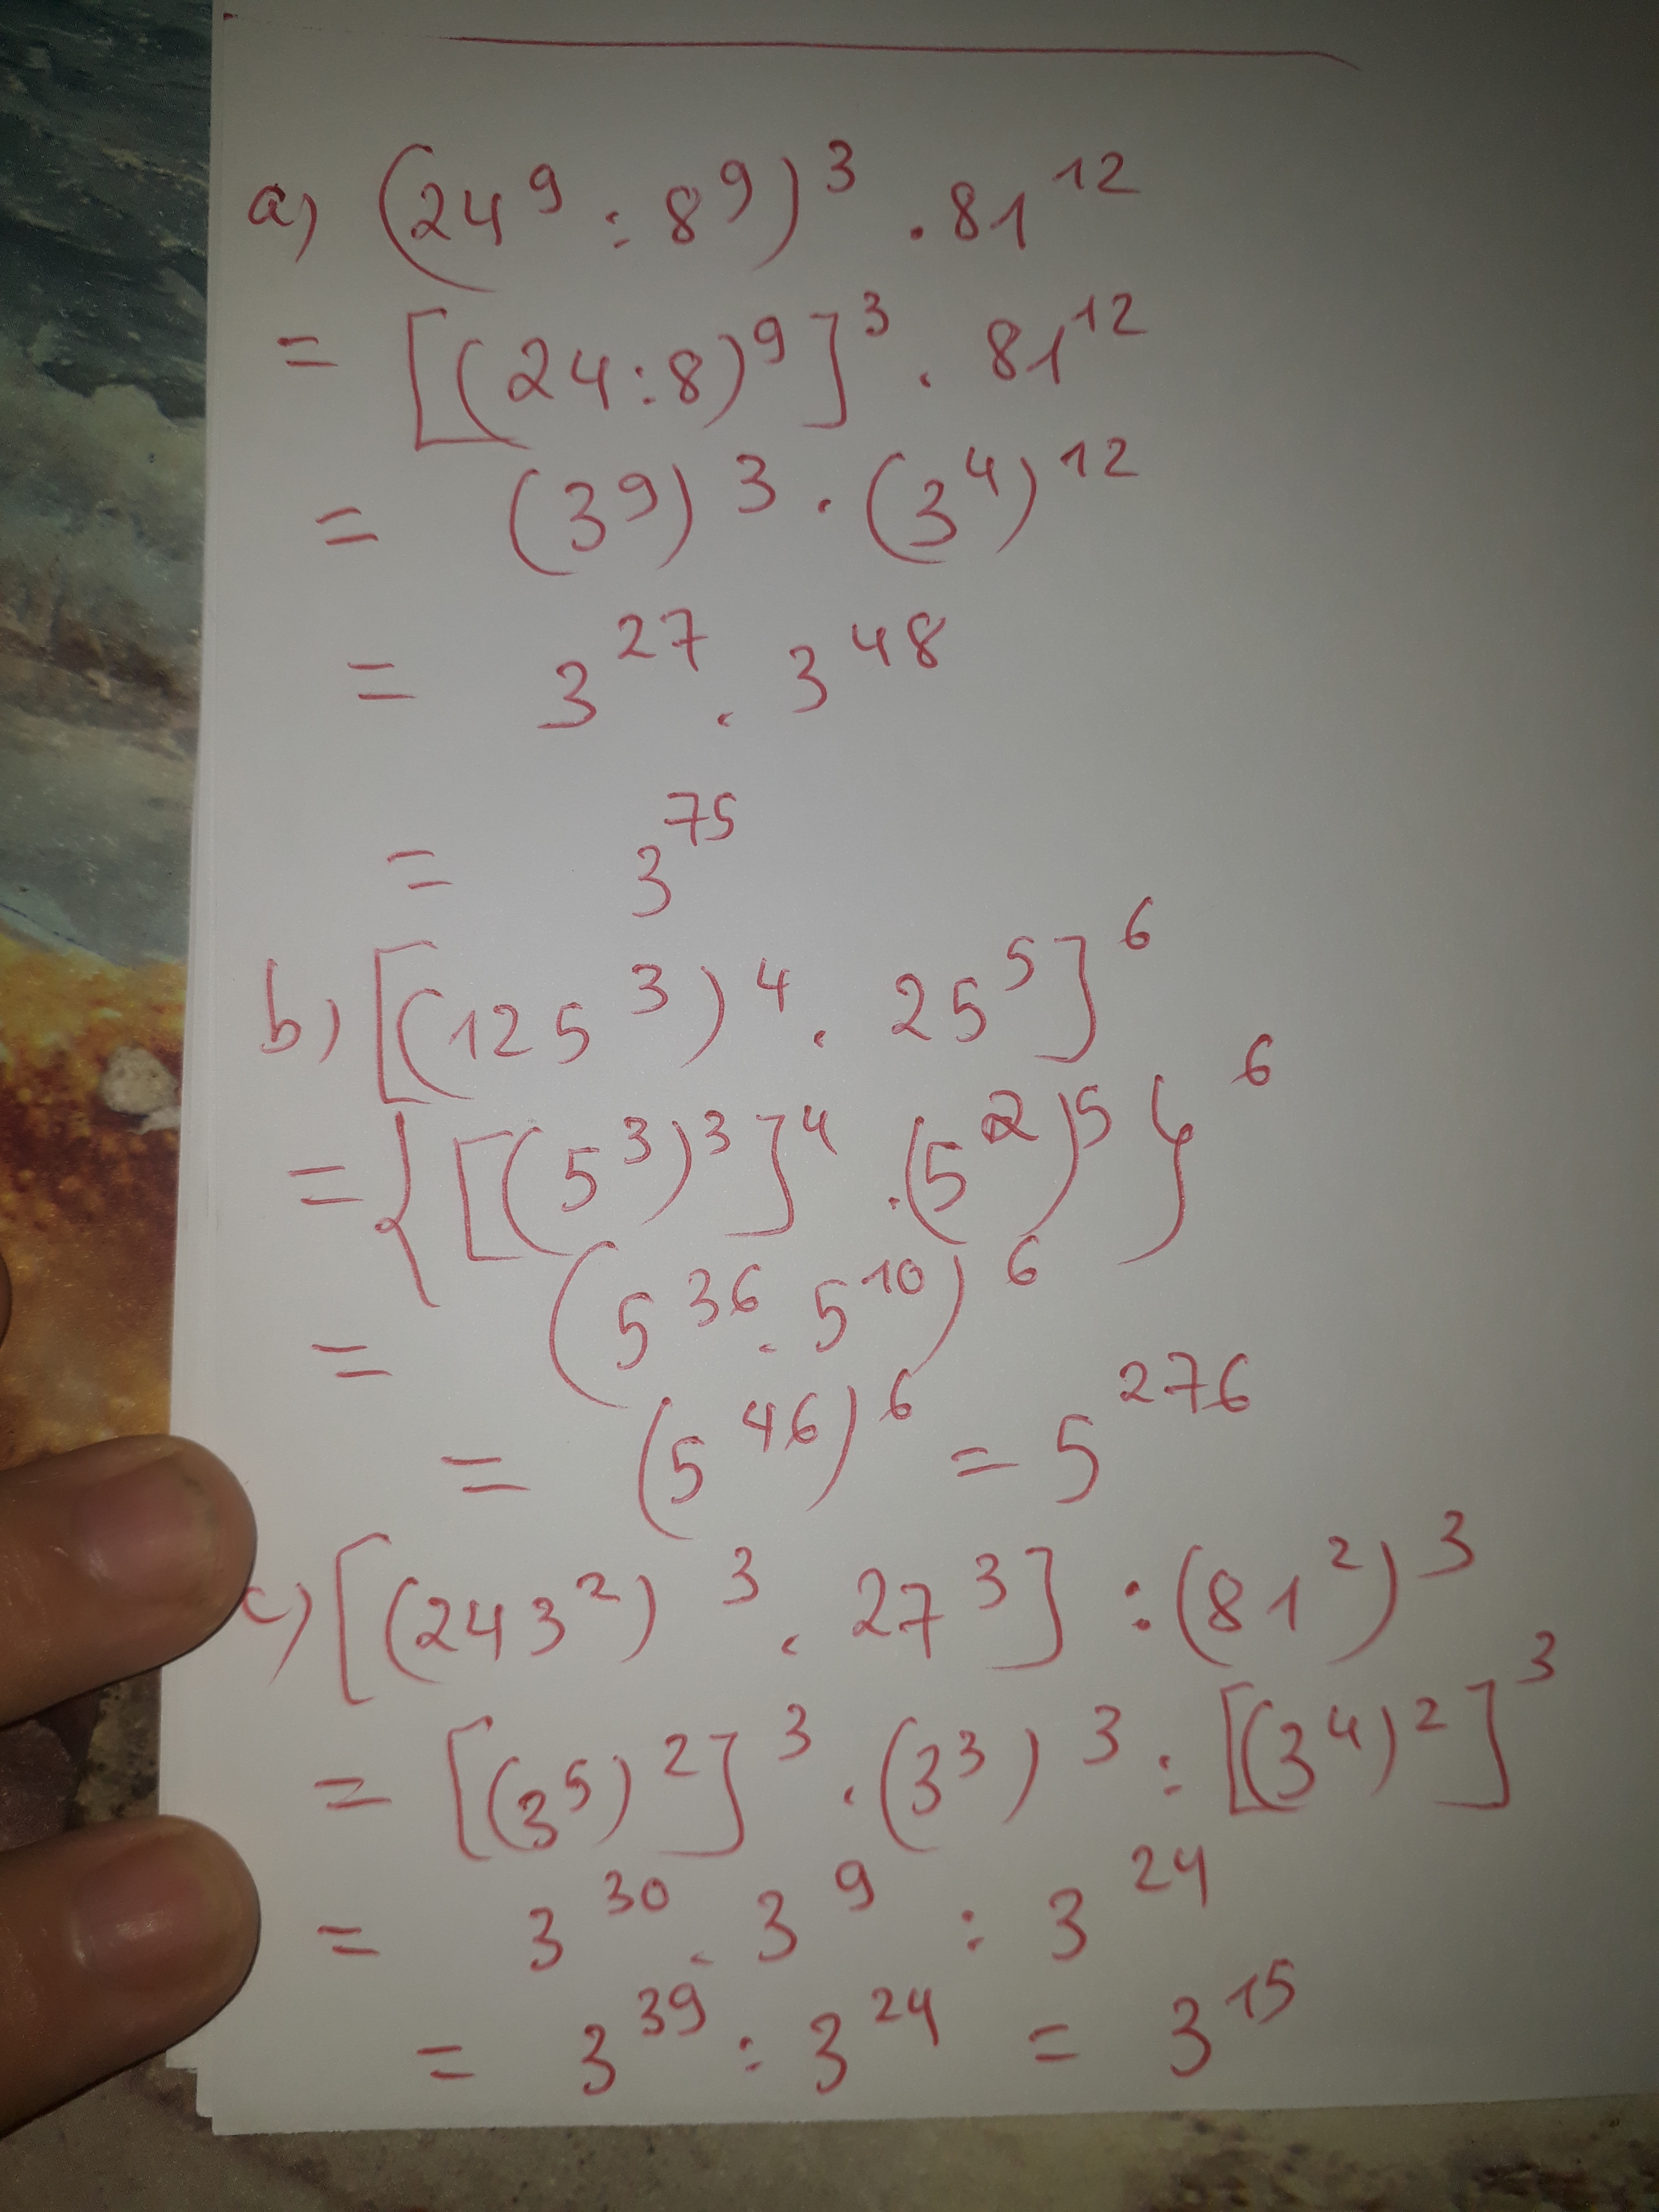 a) (24⁹ : 8⁹)³ . 81¹²
= [(24:8)⁹]³ . 81¹²
= (3⁹)³ . (3⁴)¹²
= 3²⁷ . 3⁴⁸
= 3⁷⁵
b) [(125³)⁴ . 25⁵]⁶
= {[(5³)³]⁴ . (5²)⁵}⁶
= (5³⁶ . 5¹⁰)⁶
= (5⁴⁶)⁶ = 5²⁷⁶
c) [(243²)³ . 27³] : (81²)³
= [(3⁵)²]³ . (3³)³ : [(3⁴)²]³
= 3³⁰ . 3⁹ : 3²⁴
= 3³⁹ : 3²⁴ = 3¹⁵